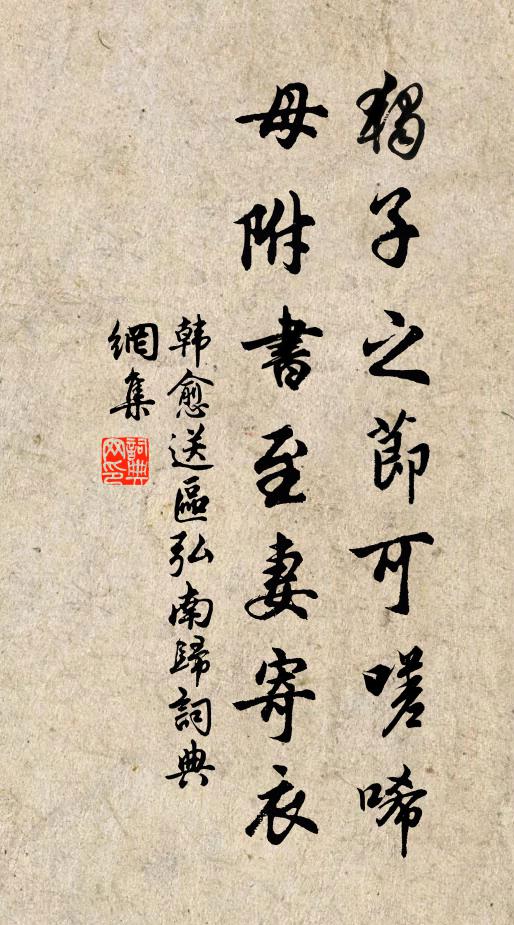 獨子之節可嗟唏
母附書至妻寄衣
韩愈送區弘南歸詞典
網集
詞典
网印